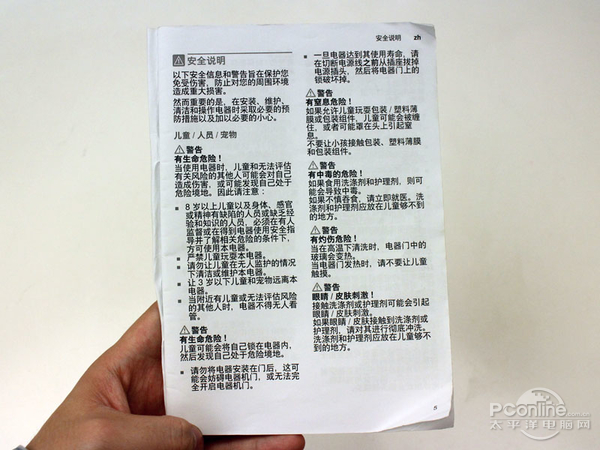 安全说明 zh
安全说明
以下安全信息和警告旨在保护您
免受伤害，防止对您的周围环境
造成重大损害。
然而重要的是，在安装、维护、
清洁和操作电器时采取必要的预
防措施以及加以必要的小心。
儿童 / 人员 / 宠物
警告
有生命危险！
当使用电器时，儿童和无法评估
有关风险的其他人可能会对自己
造成伤害，或可能发现自己处于
危险境地。因此请注意：
■ 8 岁以上儿童以及身体、感官
或精神有缺陷的人员或缺乏经
验和知识的人员，必须在有人
监督或在得到电器使用安全指
导并了解相关危险的条件下，
方可使用本电器。
■ 严禁儿童玩耍本电器。
■ 请勿让儿童在无人监护的情况
下清洁或维护本电器。
■ 让 3 岁以下儿童和宠物远离本
电器。
■ 当附近有儿童或无法评估风险
的其他人时，电器不得无人看
管。
警告
有生命危险！
儿童可能会将自己锁在电器内，
然后发现自己处于危险境地。
■ 请勿将电器安装在门后，这可
能会妨碍电器机门，或无法完
全开启电器机门。
■ 一旦电器达到其使用寿命，请
在切断电源线之前从插座拔掉
电源插头，然后将电器门上的
锁破坏掉。
警告
有窒息危险！
如果允许儿童玩耍包装 / 塑料薄
膜或包装组件，儿童可能会被缠
住，或者可能罩在头上引起窒
息。
不要让小孩接触包装、塑料薄膜
和包装组件。
警告
有中毒的危险！
如果食用洗涤剂和护理剂，则可
能会导致中毒。
如果不慎吞食，请立即就医。洗
涤剂和护理剂应放在儿童够不到
的地方。
警告
有灼伤危险！
当在高温下清洗时，电器门中的
玻璃会变热。
当电器门发热时，请不要让儿童
触摸。
警告
眼睛 / 皮肤刺激！
接触洗涤剂或护理剂可能会引起
眼睛 / 皮肤刺激。
如果眼睛 / 皮肤接触到洗涤剂或
护理剂，请对其进行彻底冲洗。
洗涤剂和护理剂应放在儿童够不
到的地方。
5
PConline.com.cn
太平洋电脑网